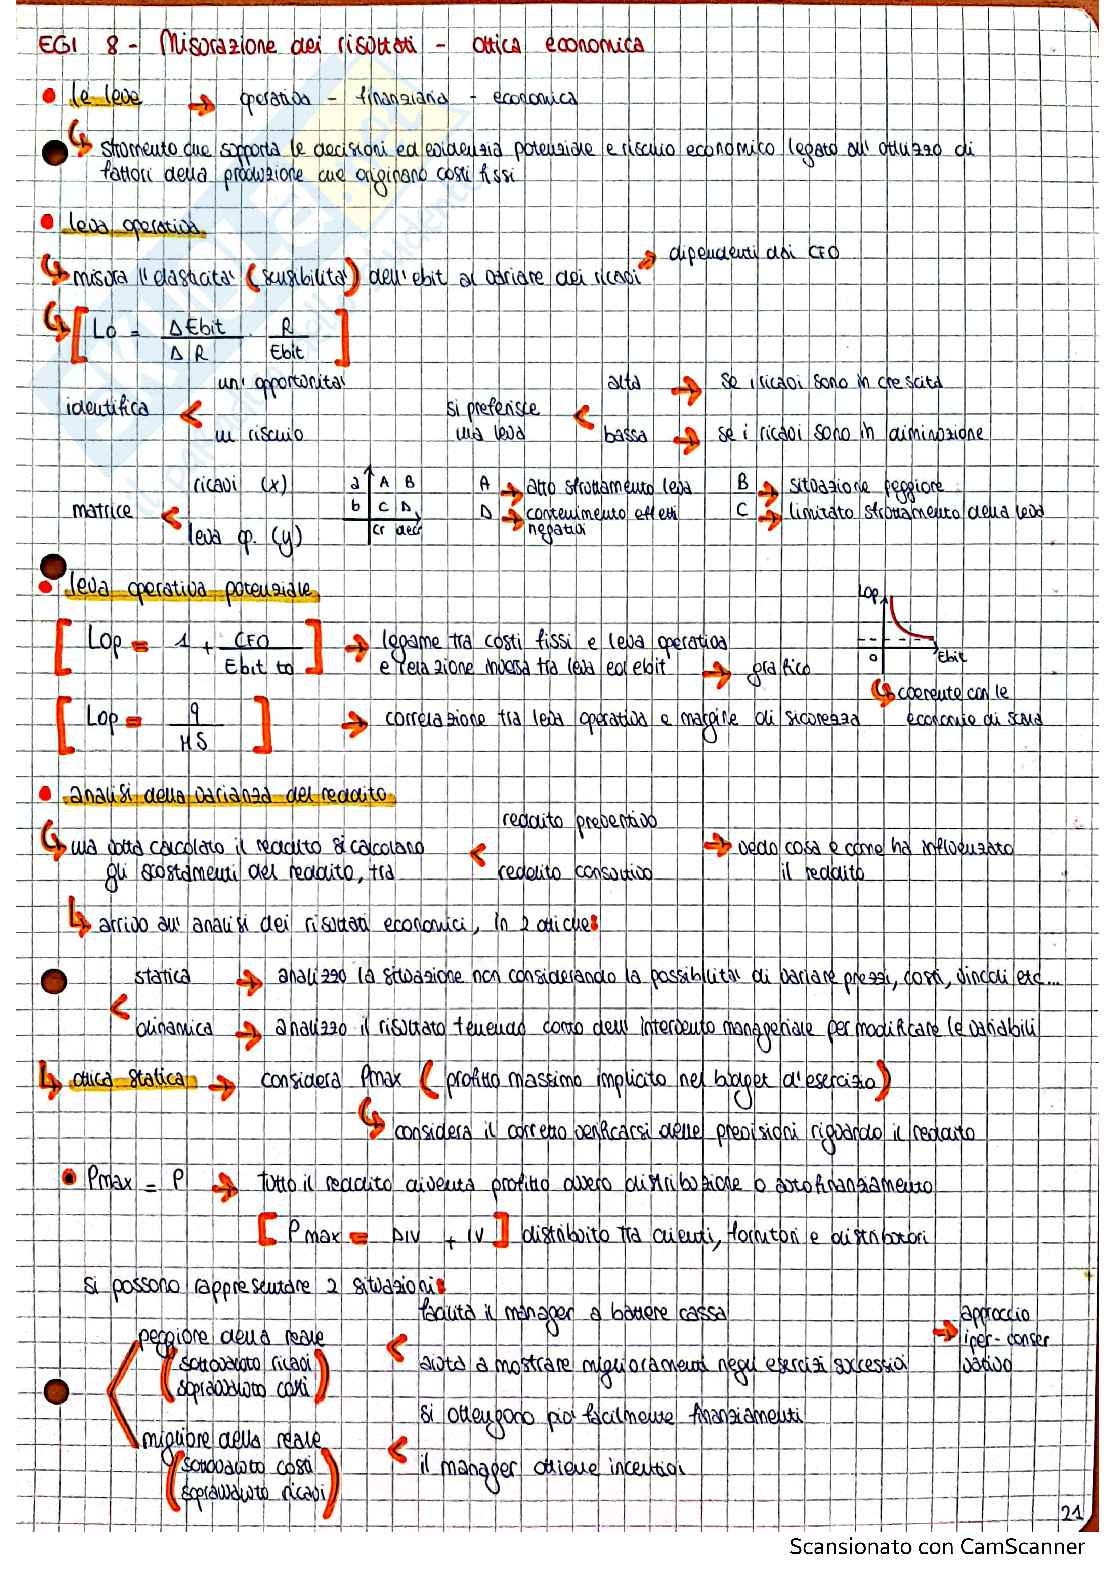 EGI 8 - Misurazione dei risultati - ottica economica
• le leve → operativa - finanziaria - economica
strumento che supporta le decisioni ed evidenzia potenziale e rischio economico legato all'utilizzo di
fattori della produzione che originano costi fissi
• leva operativa
→ dipendenti dai CFO
misura l'elasticità (sensibilità) dell'ebit al variare dei ricavi
[ Lo = ΔEbit / ΔR · R / Ebit ]
identifica < un'opportunità
un rischio
si preferisce una leva < alta → se i ricavi sono in crescita
bassa → se i ricavi sono in diminuzione
matrice < ricavi (x)
leva op. (y)
a A B
b C D
cr decr
A → alto sfruttamento leva
D → contenimento effetti negativi
B → situazione peggiore
C → limitato sfruttamento della leva
• leva operativa potenziale
[ Lop = 1 + CFO / Ebit to ] → legame tra costi fissi e leva operativa
e relazione inversa tra leva ed ebit → grafico
Lop
0 Ebit
coerente con le
economie di scala
[ Lop = q / MS ] → correlazione tra leva operativa e margine di sicurezza
• analisi della varianza del reddito
una volta calcolato il reddito si calcolano
gli scostamenti del reddito, tra < reddito preventivo
reddito consuntivo
→ vedo cosa e come ha influenzato
il reddito
arrivo all'analisi dei risultati economici, in 2 ottiche:
< statica → analizzo la situazione non considerando la possibilità di variare prezzi, costi, vincoli etc...
dinamica → analizzo il risultato tenendo conto dell'intervento manageriale per modificare le variabili
ottica statica → considera Pmax ( profitto massimo implicito nel budget d'esercizio)
considera il corretto verificarsi delle previsioni riguardo il reddito
• Pmax = P → tutto il reddito diventa profitto ovvero distribuzione o autofinanziamento
[ Pmax = DIV + IV ] distribuito tra clienti, fornitori e distributori
si possono rappresentare 2 situazioni:
peggiore della reale
(sottovaluto ricavi
sopravvaluto costi)
< facilita il manager a battere cassa
aiuta a mostrare miglioramenti negli esercizi successivi
→ approccio
iper-conser
vativo
migliore della reale
(sottovaluto costi
sopravvaluto ricavi)
< si ottengono più facilmente finanziamenti
il manager ottiene incentivi
21
Scansionato con CamScanner